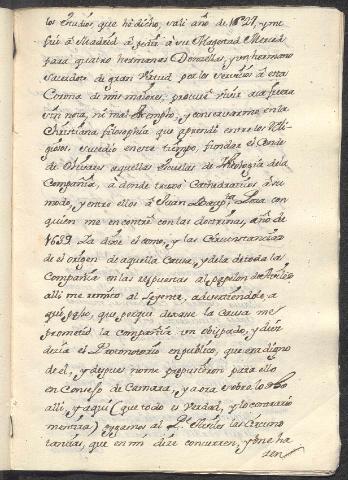 los Grados, que hà dicho, salì año de 1627, y me
fuì à Madrid à pedir à su Magestad Merced
para quatro hermanas Donzellas, y un hermano
Sacerdote de gran Virtud, por los servicios à esta
Corona de mis maiores, procurè vivir acà fuera
sin nota, ni mal exemplo, y conservarme en la
Christiana filosophia que aprendì entre los Reli-
giosos. Sucediò en este tiempo, fundar el Conde
de Olivares aquellas Escuelas de Theologia de la
Compañia, à donde truxo Cathedraticos à su
modo, y entre ellos à Juan Bauptᵃ Poza con
quien me encontrè con las doctrinas, año de
1632. Ya dixe el como, y las Circunstancias
de el origen de aquella Causa, y de la de toda la
Compañia en las respuestas al papelon
alli me remito al Leyente, advirtiendole, a
que porque dexasse la causa me
prometiò la compañia un obispado, y
decia el Promotorio en publico, que era digno
de el, y despues no me propusieron para ello
en Consejo de Camara, y aora sobre lo dho
alli, y aqui (que todo es verdad, y lo contrario
mentira) oygamos al Pᵉ las Circuns-
tancias, que en mi dize concurren, y me ha